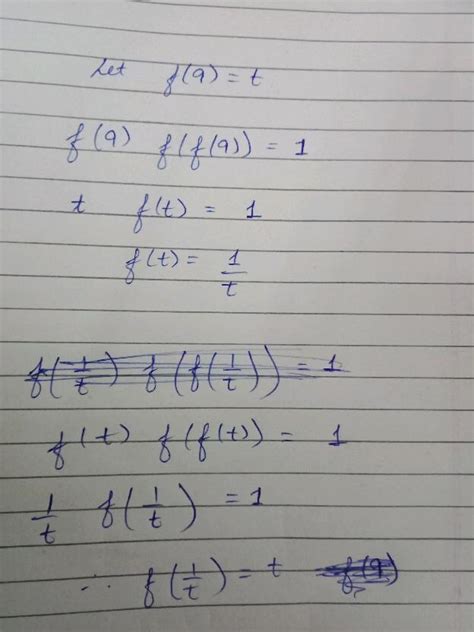 Let f(9) = t
f(9) f(f(9)) = 1
t f(t) = 1
f(t) = 1/t
f(1/t) f(f(1/t)) = 1
f(t) f(f(t)) = 1
1/t f(1/t) = 1
∴ f(1/t) = t = f(9)